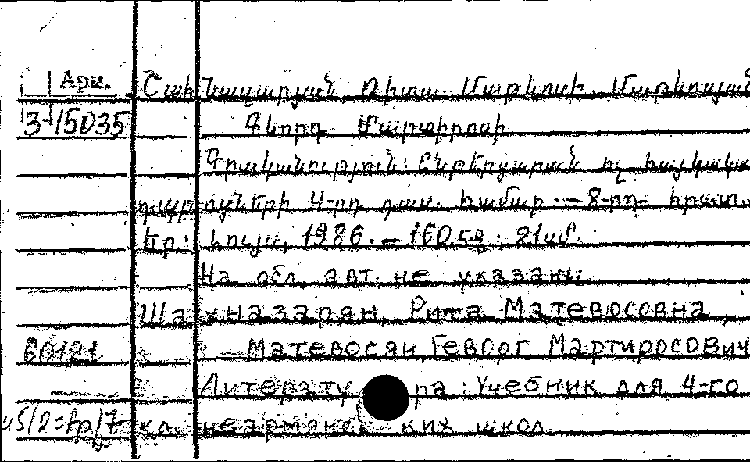 Арм. Շահնազարյան Ռիտա Մաթևոսի, Մաթևոսյան
3-15035 Գևորգ Մարտիրոսի
Գրականություն: Ընթերցարան ոչ հայկական
դպրոցների 4-րդ դաս. համար. – 8-րդ հրատ.
Եր.: Լույս, 1986. – 160 էջ. 21սմ.
На обл. авт. не указаны
Шахназарян, Рита Матевосовна
60121 Матевосян Геворг Мартиросович
Литература: Учебник для 4-го
кл. неармянских школ